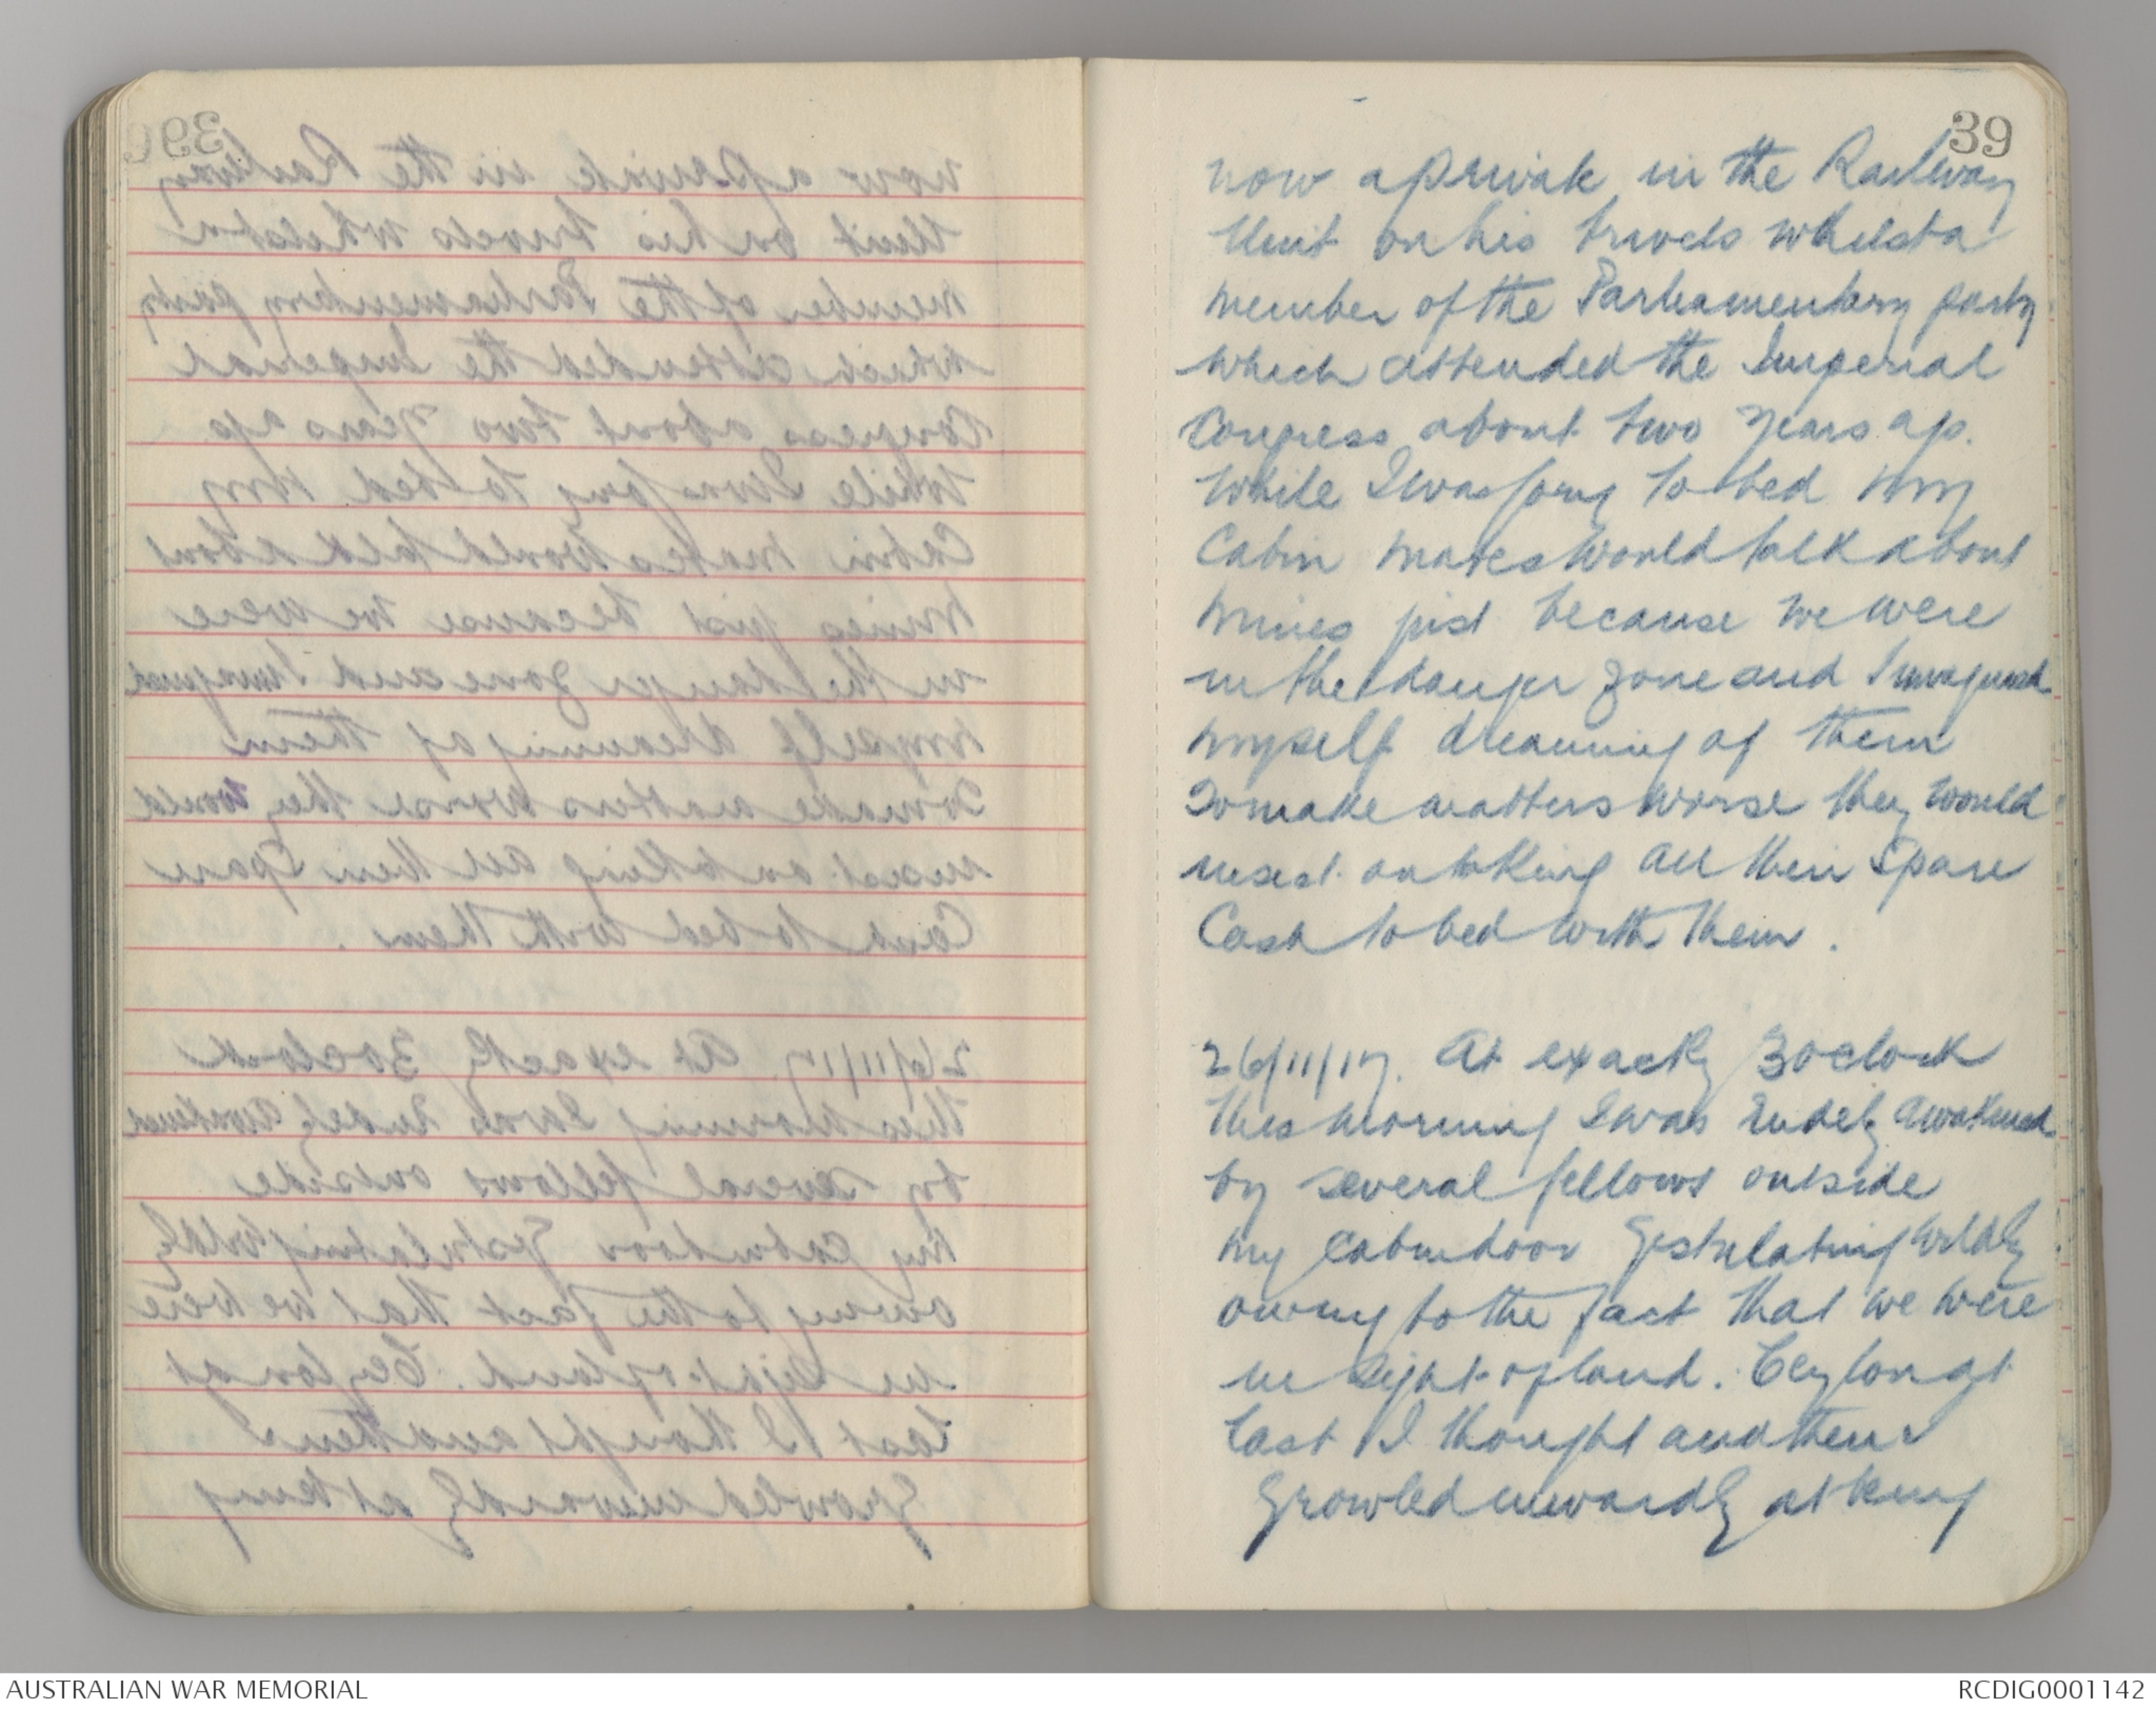 39
now a private in the Railway
Unit on his travels whilst a
member of the Parliamentary party
which attended the Imperial
Congress about two years ago.
While I was going to bed my
Cabin mates would talk about
mines just because we were
in the danger zone and I imagined
myself dreaming of them
To make matters worse they would
insist on taking all their spare
Cash to bed with them.
26/11/17. At exactly 3 oclock
this morning I was rudely awakened
by several fellows outside
my cabin door gestulating wildly
owing to the fact that we were
in sight of land. Ceylon at
last I thought and then I
growled inwardly at being
AUSTRALIAN WAR MEMORIAL
RCDIG0001142